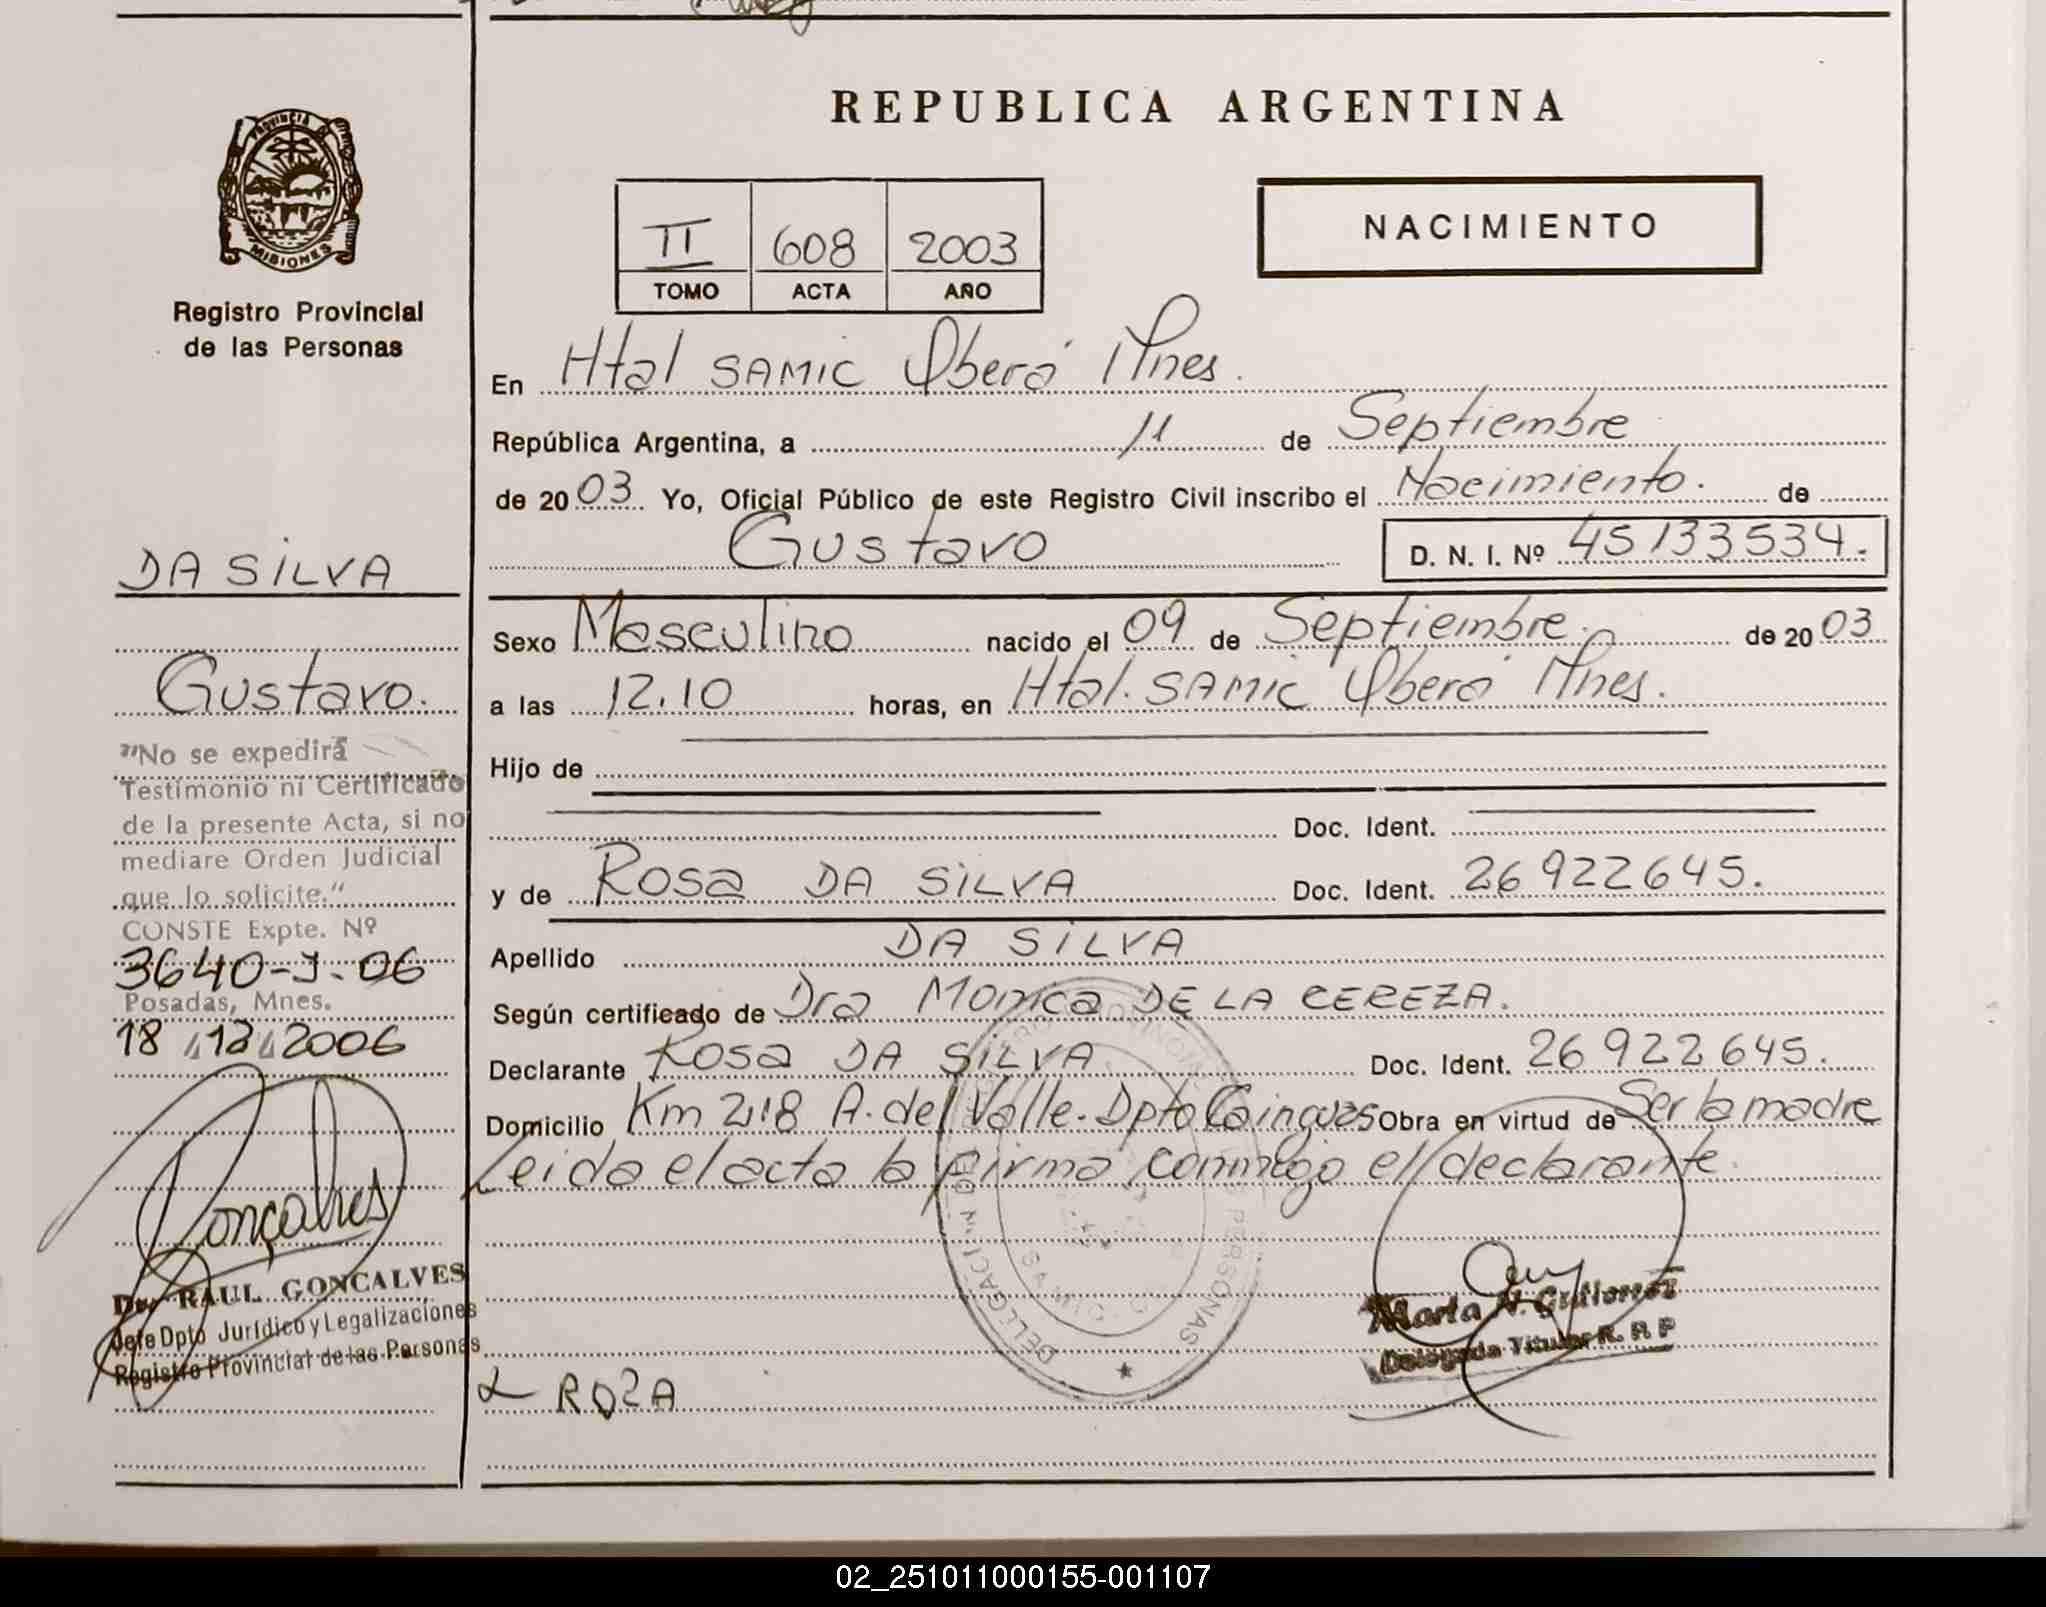 REPUBLICA ARGENTINA
PROVINCIA DE
MISIONES
Registro Provincial
de las Personas
II 608 2003
TOMO ACTA AÑO
NACIMIENTO
En Htal SAMIC Oberá Mnes.
República Argentina, a 11 de Septiembre
de 2003. Yo, Oficial Público de este Registro Civil inscribo el Nacimiento. de
Gustavo D. N. I. Nº 45133534.
DA SILVA
Sexo Masculino nacido el 09 de Septiembre. de 2003
Gustavo.
a las 12.10 horas, en Htal. SAMIC Oberá Mnes.
Hijo de
Doc. Ident.
y de Rosa DA SILVA Doc. Ident. 26922645.
Apellido DA SILVA
Según certificado de Dra Monica DE LA CEREZA.
Declarante Rosa DA SILVA Doc. Ident. 26922645.
Domicilio Km 218 A. del Valle. Dpto Cainguas Obra en virtud de Ser la madre
Leida el acta la firma conmigo el declarante.
"No se expedirá
Testimonio ni Certificado
de la presente Acta, si no
mediare Orden Judicial
que lo solicite."
CONSTE Expte. Nº
3640-J-06
Posadas, Mnes.
18/12/2006
Gonçalves
Dr. RAUL GONCALVES
Jefe Dpto Jurídico y Legalizaciones
Registro Provincial de las Personas
DELEGACION PERSONAS
SAMIC
Marta N. Gutierrez
Delegada Titular R. R. P
ROZA
02_251011000155-001107